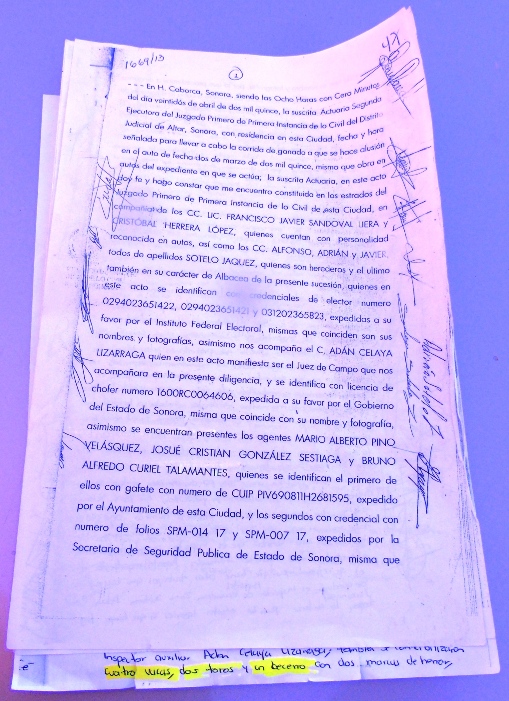 1664/13
1
47
- - - En H. Caborca, Sonora, siendo las Ocho Horas con Cero Minutos
del día veintidós de abril de dos mil quince, la suscrita Actuaria Segunda
Ejecutora del Juzgado Primero de Primera Instancia de lo Civil del Distrito
Judicial de Altar, Sonora, con residencia en esta Ciudad, fecha y hora
señalada para llevar a cabo la corrida de ganado a que se hace alusión
en el auto de fecha dos de marzo de dos mil quince, mismo que obra en
autos del expediente en que se actúa; la suscrita Actuaria, en este acto
doy fe y hago constar que me encuentro constituida en los estrados del
Juzgado Primero de Primera Instancia de lo Civil de esta Ciudad, en
compañía de los CC. LIC. FRANCISCO JAVIER SANDOVAL LIERA y
CRISTÓBAL HERRERA LÓPEZ, quienes cuentan con personalidad
reconocida en autos, así como los CC. ALFONSO, ADRIÁN y JAVIER,
todos de apellidos SOTELO JAQUEZ, quienes son herederos y el ultimo
también en su carácter de Albacea de la presente sucesión, quienes en
este acto se identifican con credenciales de elector numero
0294023651422, 0294023651421 y 031202365823, expedidas a su
favor por el Instituto Federal Electoral, mismas que coinciden son sus
nombres y fotografías, asimismo nos acompaña el C. ADÁN CELAYA
LIZARRAGA quien en este acto manifiesta ser el Juez de Campo que nos
acompañara en la presente diligencia, y se identifica con licencia de
chofer numero 1600RC0064606, expedida a su favor por el Gobierno
del Estado de Sonora, misma que coincide con su nombre y fotografía,
asimismo se encuentran presentes los agentes MARIO ALBERTO PINO
VELÁSQUEZ, JOSUÉ CRISTIAN GONZÁLEZ SESTIAGA y BRUNO
ALFREDO CURIEL TALAMANTES, quienes se identifican el primero de
ellos con gafete con numero de CUIP PIV690811H2681595, expedido
por el Ayuntamiento de esta Ciudad, y los segundos con credencial con
numero de folios SPM-014 17 y SPM-007 17, expedidos por la
Secretaria de Seguridad Publica de Estado de Sonora, misma que
Inspector auxiliar Adan Celaya Lizarraga, también se
cuatro vacas, dos toros y un becerro con dos marcas de herrar,